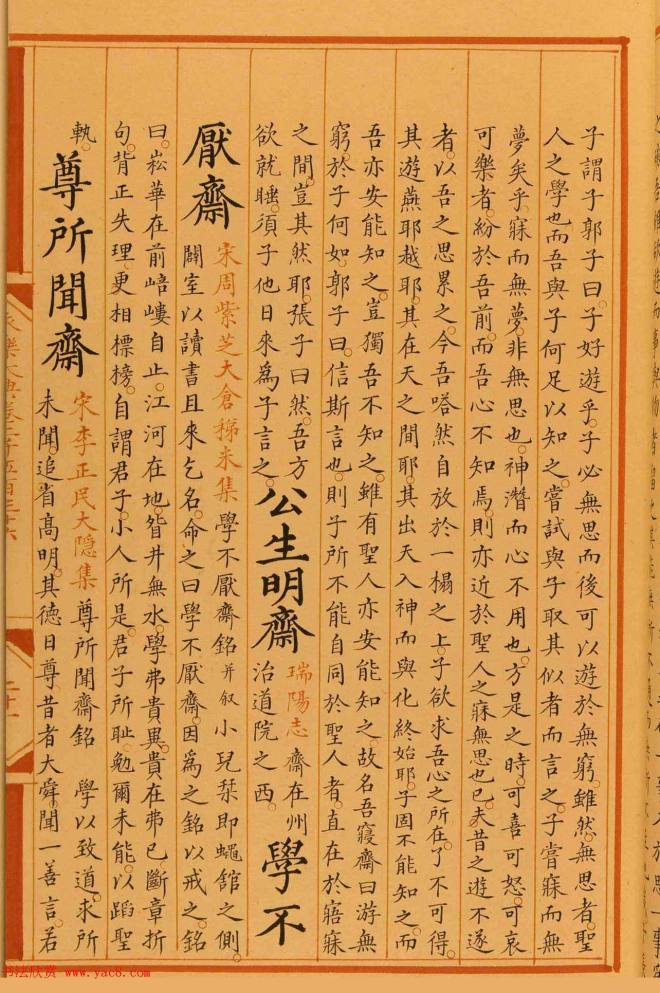 子謂子郭子曰子好遊乎子必無思而後可以遊於無窮雖然無思者聖
人之學也而吾與子何足以知之嘗試與子取其似者而言之子嘗寐而無
夢矣乎寐而無夢非無思也神潛而心不用也方是之時可喜可怒可哀
可樂者紛於吾前而吾心不知焉則亦近於聖人之寐無思也已夫昔之遊不遂
者以吾之思累之今吾嗒然自放於一榻之上子欲求吾心之所在了不可得
其遊燕耶越耶其在天之間耶其出天入神而與化終始耶子固不能知之而
吾亦安能知之豈獨吾不知之雖有聖人亦安能知之故名吾寢齋曰游無
窮於子何如郭子曰信斯言也則子所不能自同於聖人者直在於寤寐
之間豈其然耶張子曰然吾方
欲就睡須子他日來為子言之
公生明齋
瑞陽志齋在州
治道院之西
學不
厭齋
宋周紫芝大倉稊米集學不厭齋銘并敘小兒栞即蠅館之側
闢室以讀書且來乞名命之曰學不厭齋因為之銘以戒之銘
曰崧華在前㟝嶁自止江河在地眢井無水學弗貴異貴在弗已斷章折
句背正失理更相標榜自謂君子小人所是君子所耻勉爾未能以蹈聖
軌
尊所聞齋
宋李正民大隱集尊所聞齋銘 學以致道求所
未聞追省高明其德日尊昔者大舜聞一善言若
二十一
书法欣赏 www.yac8.com